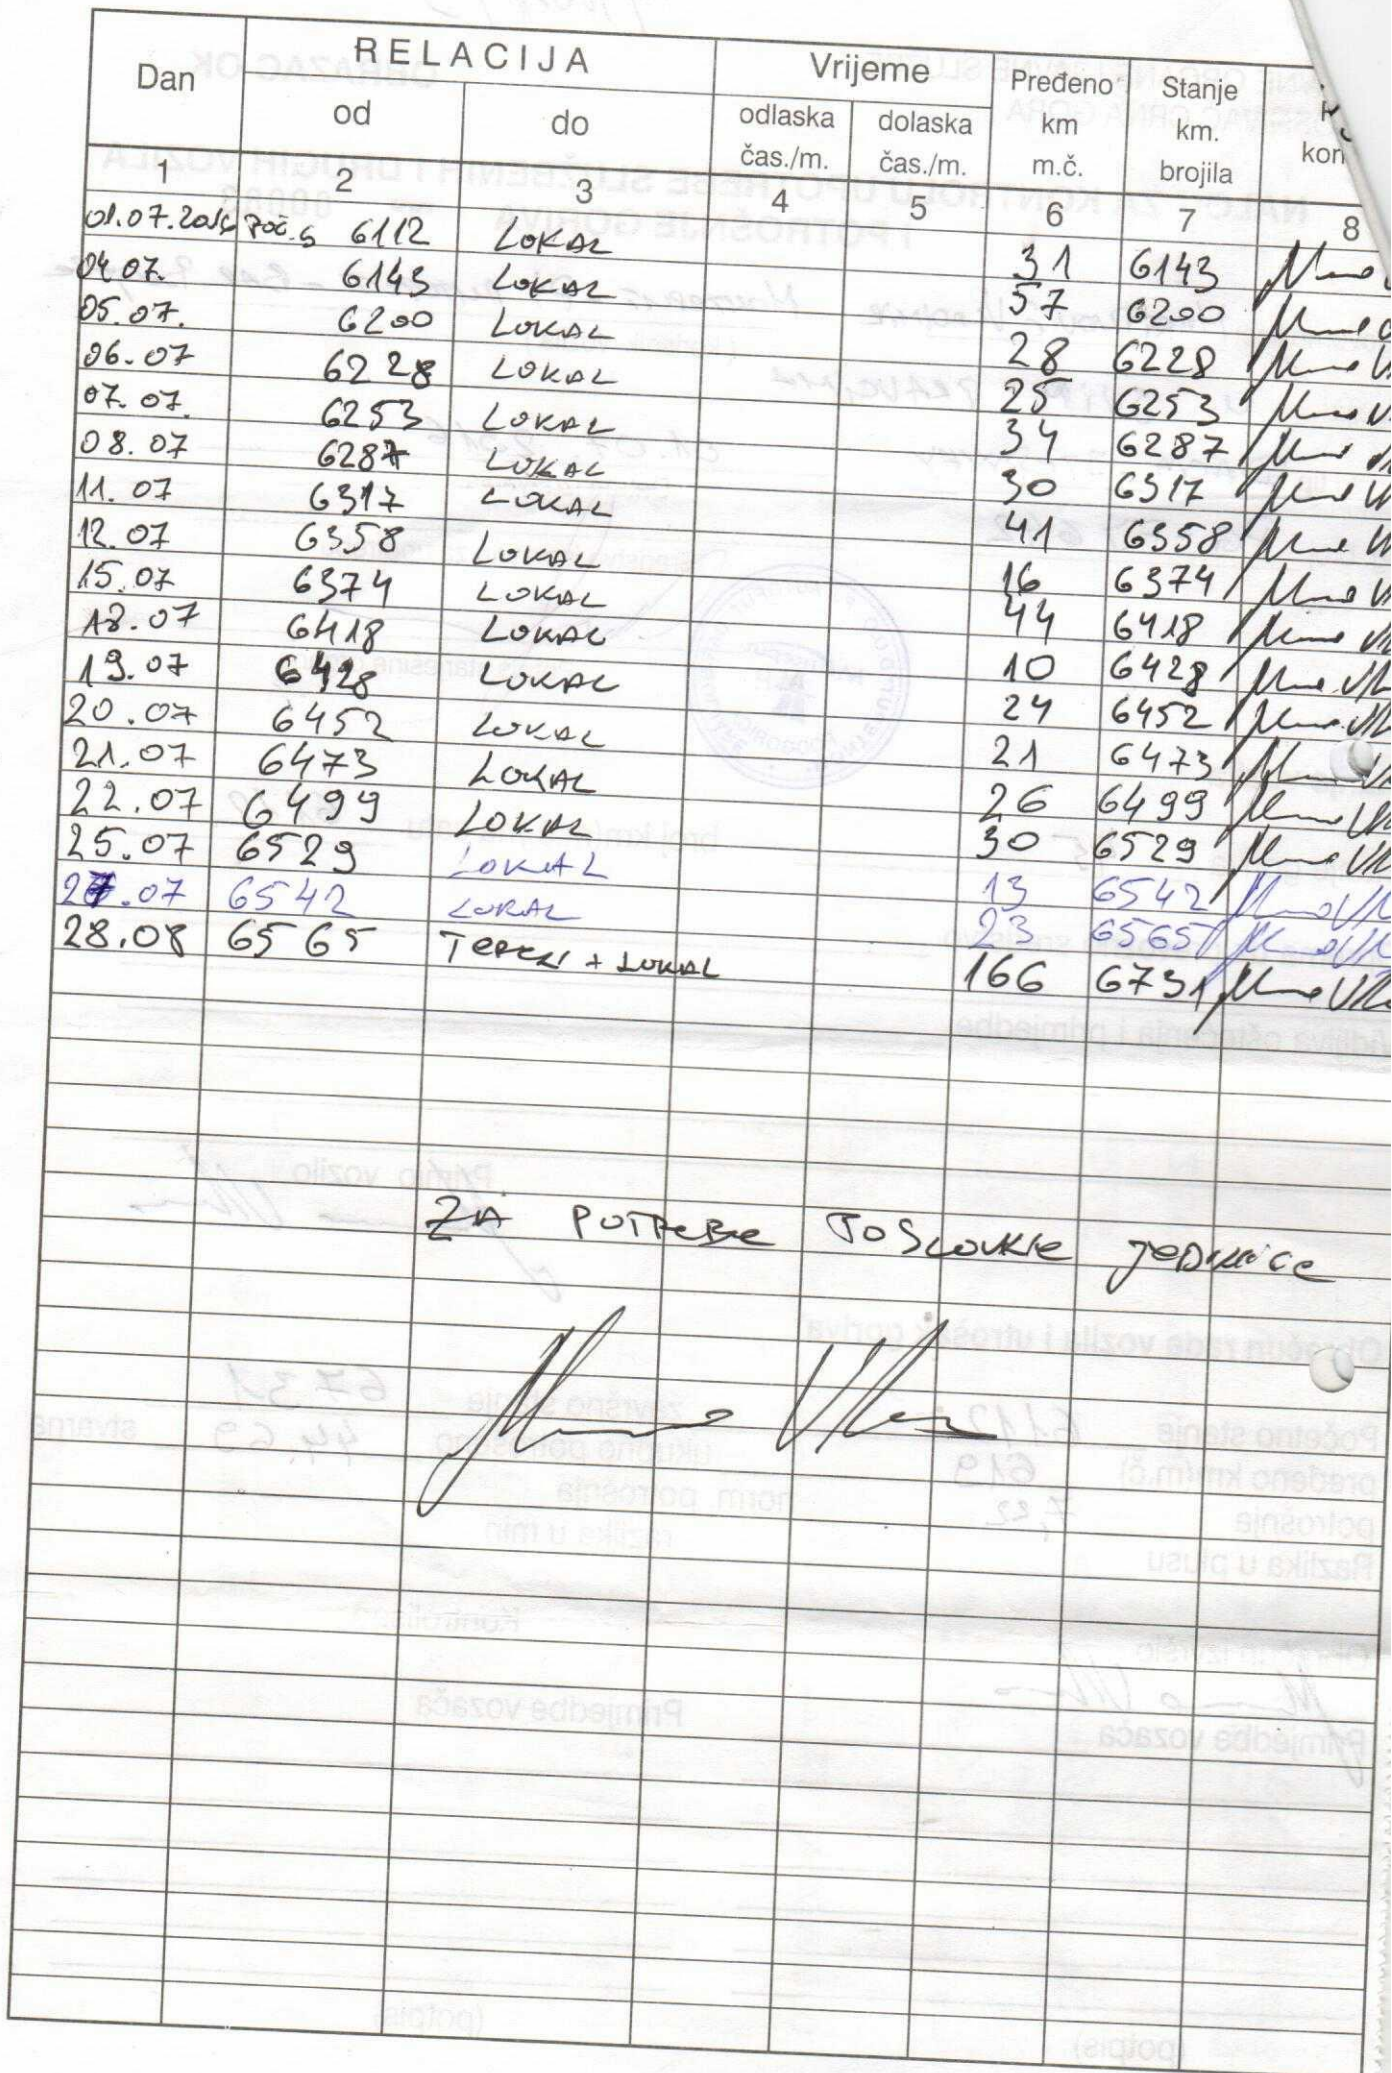 Dan RELACIJA Vrijeme Pređeno km m.č. Stanje km. brojila
od do odlaska čas./m. dolaska čas./m. kor
1 2 3 4 5 6 7 8
01.07.2016 Poč.s 6112 LOKAL 31 6143
04.07. 6143 LOKAL 57 6200
05.07. 6200 LOKAL 28 6228
06.07 6228 LOKAL 25 6253
07.07. 6253 LOKAL 34 6287
08.07 6287 LOKAL 30 6317
11.07 6317 LOKAL 41 6358
12.07 6358 LOKAL 16 6374
15.07 6374 LOKAL 44 6418
18.07 6418 LOKAL 10 6428
19.07 6428 LOKAL 24 6452
20.07 6452 LOKAL 21 6473
21.07 6473 LOKAL 26 6499
22.07 6499 LOKAL 30 6529
25.07 6529 LOKAL 13 6542
27.07 6542 LOKAL 23 6565
28.08 6565 + LOKAL 166 6731
ZA POTREBE POSLOVNE JEDINICE